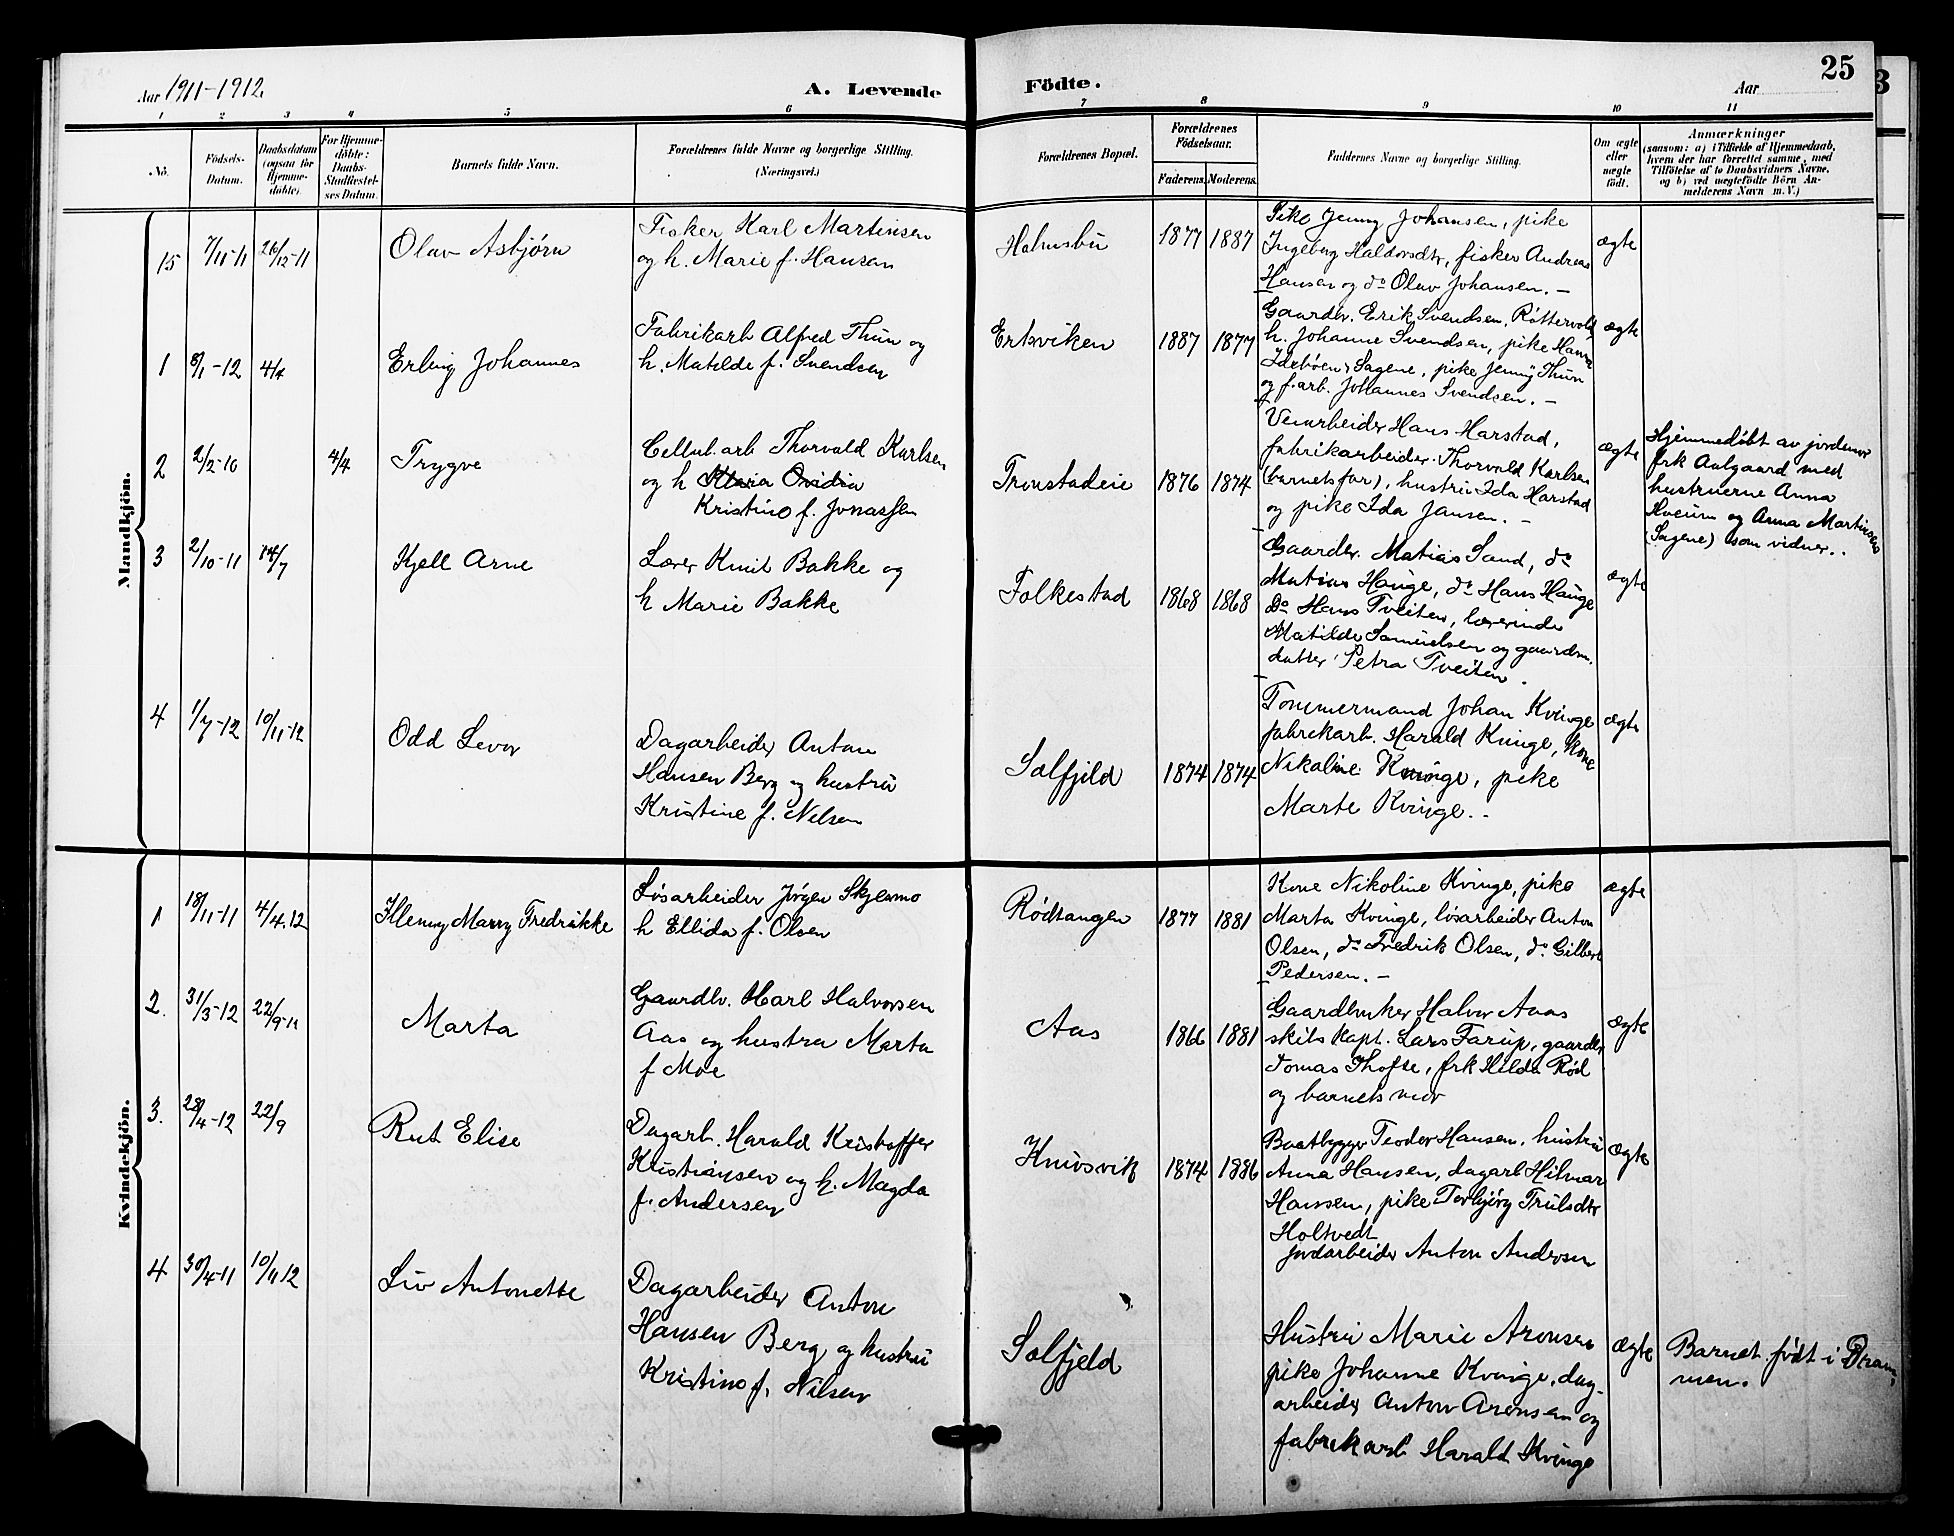 Aar 1911-1912. A. Levende Födte. Aar 25
1 2 3 4 5 6 7 8 9 10 11
No. Födsels-Datum. Daabsdatum (ogsaa for Hjemme-döbte). For Hjemme-döbte: Daabs-Stadfæstel-ses Datum. Barnets fulde Navn. Forældrenes fulde Navne og borgerlige Stilling. (Næringsvei.) Forældrenes Bopæl. Forældrenes Födselsaar. Faderens. Moderens. Faddernes Navne og borgerlige Stilling. Om ægte eller uægte födt. Anmærkninger (saasom: a) i Tilfælde af Hjemmedaab, hvem der har forrettet samme, med Tilföielse af to Daabsvidners Navne, og b) ved uægtefödte Börn An-melderens Navn m. V.)
Mandkjön.
15 7/11-11 26/12-11 Olav Asbjørn
Fisker Karl Martinsen
og h. Marie f. Hansen
Holmsbu 1877 1887
Pike Jenny Johansen, pike
Ingeborg Haldorsdtr, fisker Andreas
Hansen og do Olav Johansen. —
ægte
1 8/1-12 4/4 Erling Johannes
Fabrikarb Alfred Thun og
h. Matilde f. Svendsen
Ertsviken 1887 1877
Gaardbr. Erik Svendsen, Røttervold,
h. Johanne Svendsen, pike Hanna
Idebøen, Sagene, pike Jenny Thun
og f.arb. Johannes Svendsen. —
ægte
2 2/2-10 4/4 Trygve
Cellul.arb Thorvald Karlsen
og h Maria Ovidia
Kristine f. Jonassen
Tronstadeie 1876 1874
Veiarbeider Hans Harstad,
fabrikarbeider Thorvald Karlsen
(barnets far), hustru Ida Harstad
og pike Ida Jansen. —
ægte
Hjemmedøbt av jordmor
frk Aalgaard med
hustruerne Anna
Kveum og Anna Martinsen
(Sagene) som vidner..
3 2/10-11 14/7 Kjell Arne
Lærer Knut Bakke og
h Marie Bakke
Folkestad 1868 1868
Gaardbr. Matias Sand, do
Matias Hauge, do Hans Hauge
do Hans Tveiten, lærerinde
Matilde Samuelsen og gaardm.
datter Petra Tveiten.
ægte
4 1/7-12 10/11-12 Odd Levor
Dagarbeider Anton
Hansen Berg og hustru
Kristine f. Nelsen
Solfjeld 1874 1874
Tømmermand Johan Kvinge
fabrikarb. Harald Kvinge, kone
Nikoline Kvinge, pike
Marte Kvinge..
ægte
Kvindekjön.
1 18/11-11 4/4.12 Henny Marry Fredrikke
Løsarbeider Jørgen Skjelmo
h Ellida f. Olsen
Rødtangen 1877 1881
Kone Nikoline Kvinge, pike
Marta Kvinge, løsarbeider Anton
Olsen, do Fredrik Olsen, do Gilbert
Pedersen. —
ægte
2. 31/3-12 22/9-12 Marta
Gaardbr. Karl Halvorsen
Aas og hustru Marta
f Moe
Aas 1866 1881
Gaardbruker Halvor Aaas
skibskapt. Lars Farup, gaardbr
Tomas Thofte, frk Hilda Rød
og barnets mor
ægte
3. 28/4-12 22/9 Rut Elise
Dagarb. Harald Kristoffer
Kristiansen og h. Magda
f. Andersen
Knivsvik 1874 1886
Baatbygger Teodor Hansen, hustru
Anna Hansen, dagarb Hilmar
Hansen, pike Torbjørg Trulsdtr
Holtvedt
jordarbeider Anton Andersen
ægte
4 30/4-11 10/11 12 Liv Antonette
Dagarbeider Anton
Hansen Berg og hustru
Kristine f. Nilsen
Solfjeld
Hustru Marie Aronsen
pike Johanne Kvinge, dag-
arbeider Anton Aronsen og
fabrikarb Harald Kvinge
ægte
Barnet født i Dram-
men.